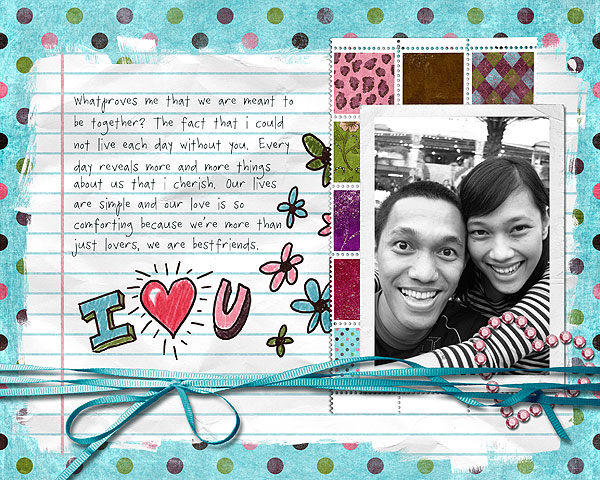 What proves me that we are meant to
be together? The fact that i could
not live each day without you. Every
day reveals more and more things
about us that i cherish. Our lives
are simple and our love is so
comforting because we're more than
just lovers, we are bestfriends.
I U